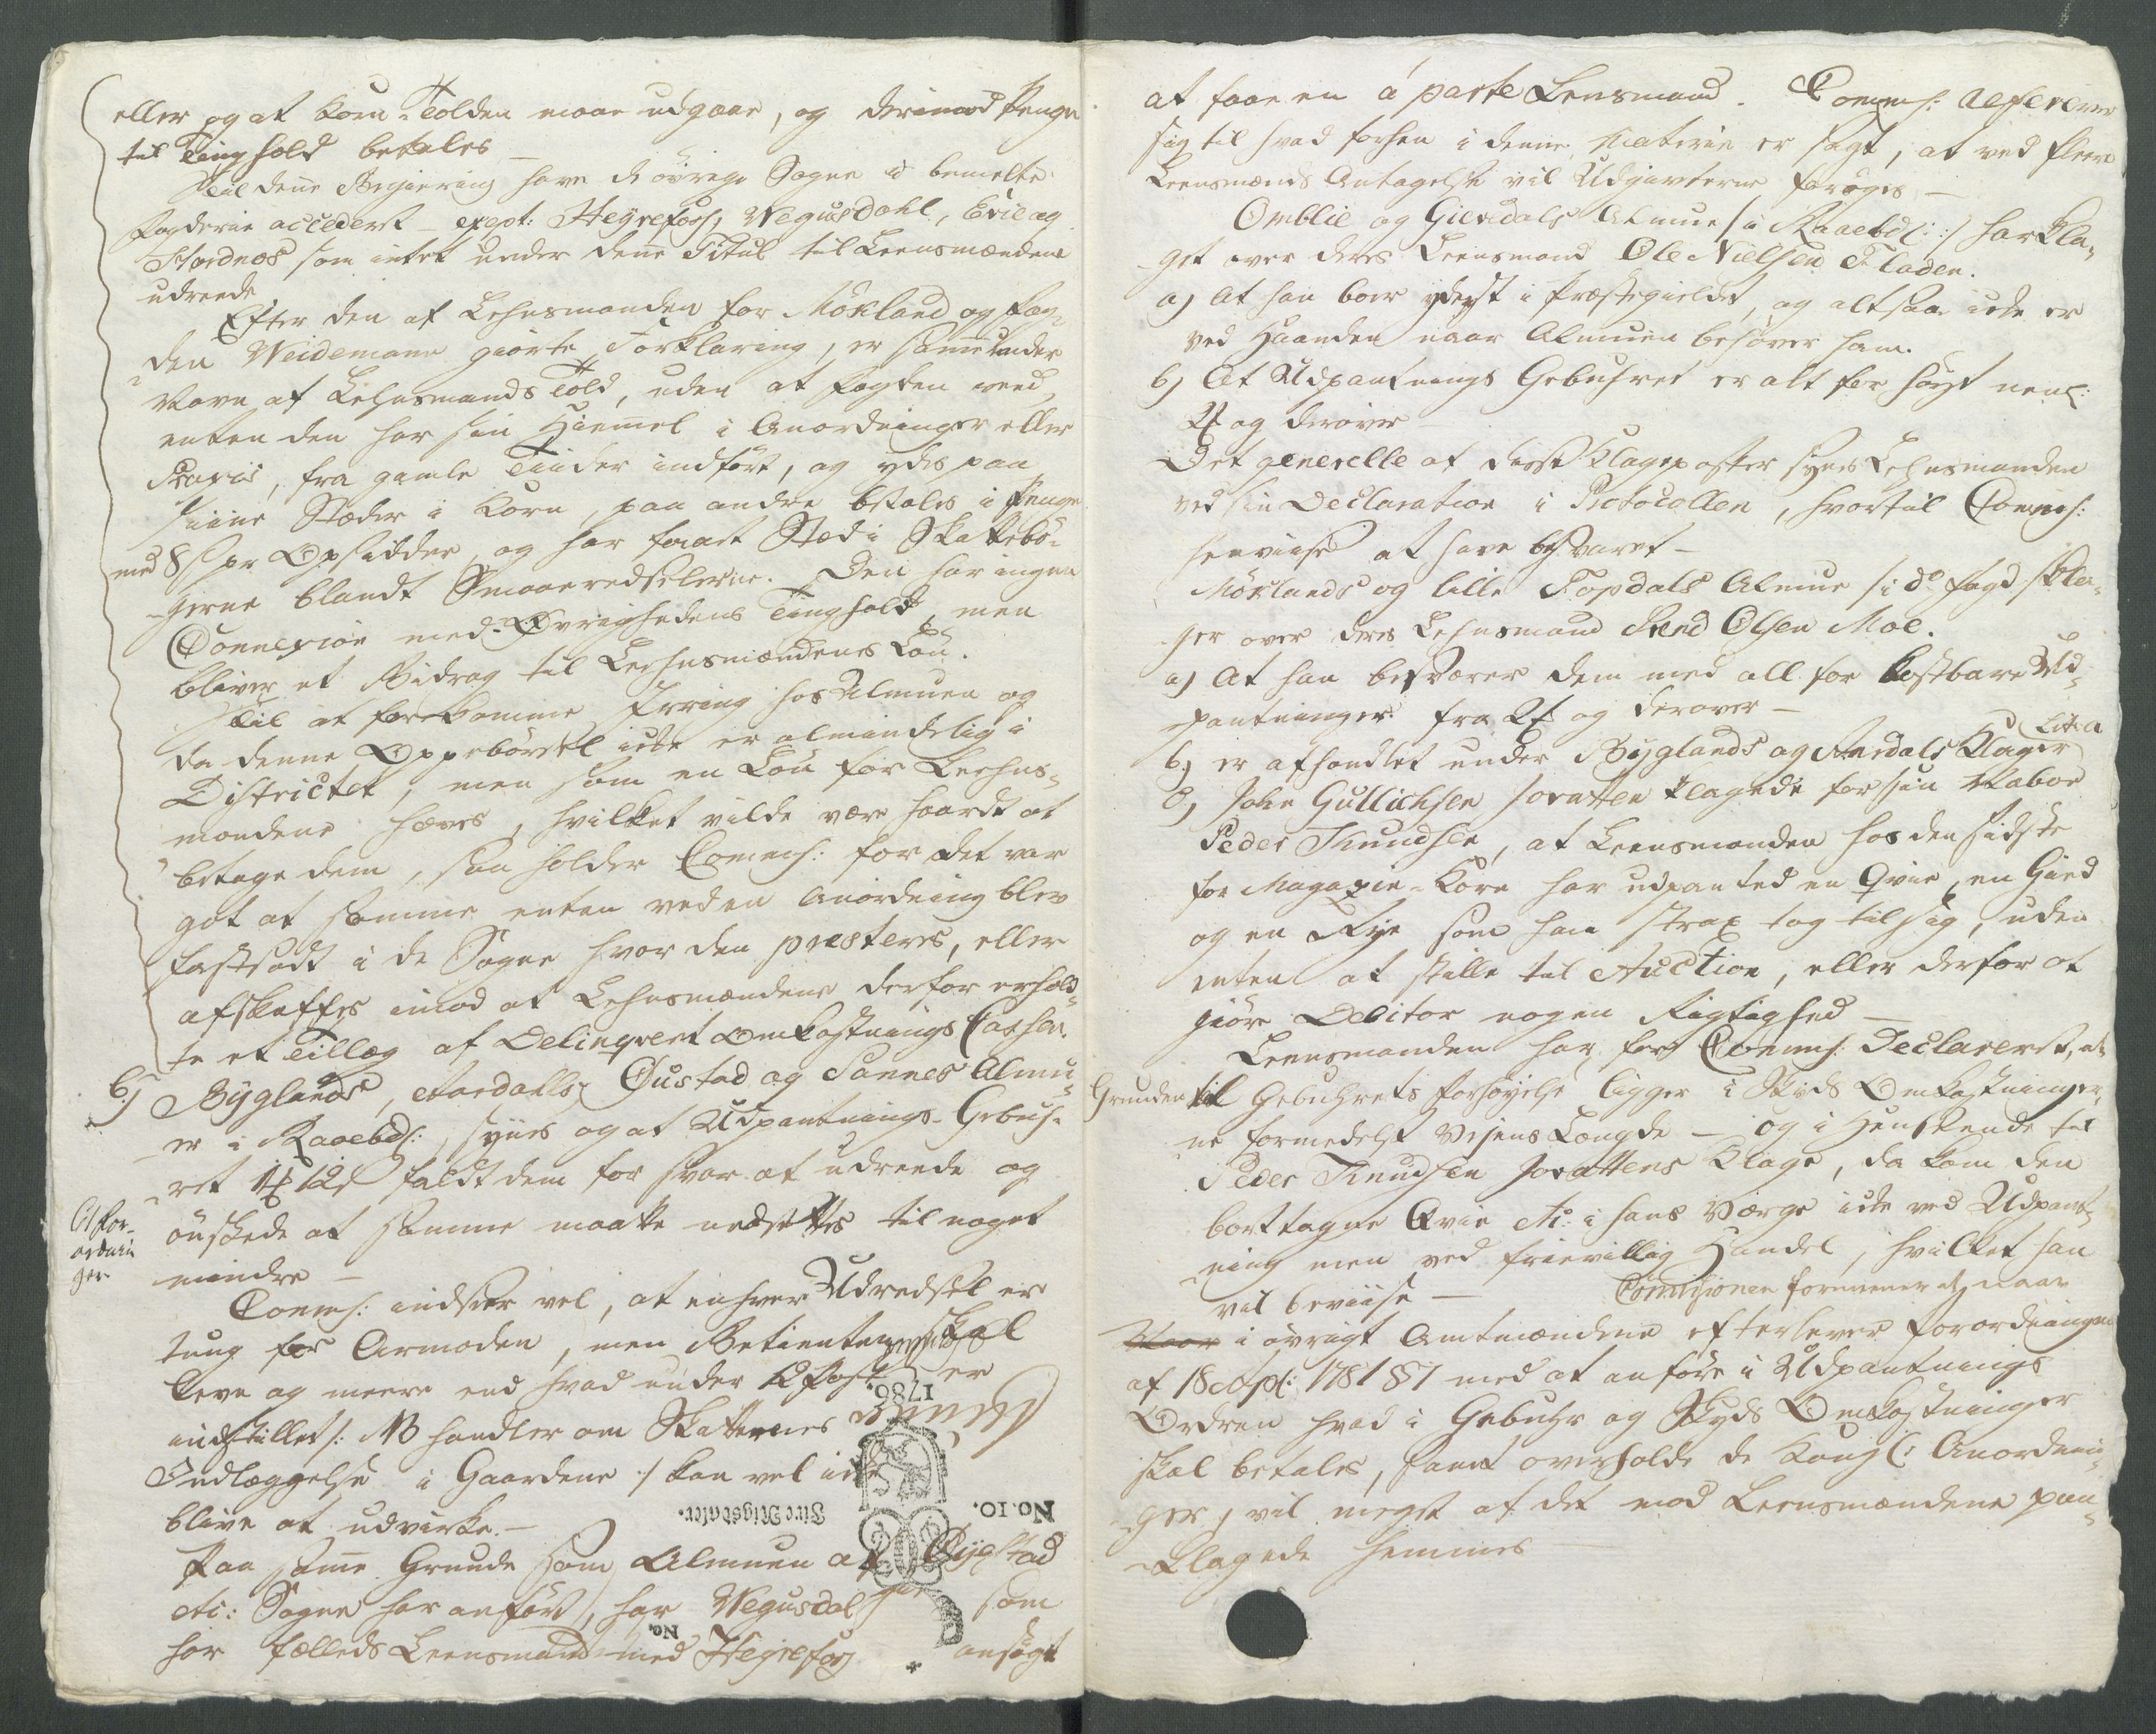 eller og at Korn-Tolden maae udgaae, og derimod Penge
til Tinghold betales —
Til denne Begiering have de övrige Sogne i bemelte
Fogderie accederet — exept: Heyrefoss, Wegusdahl, Evie og
Hordnes som intet under denne Titul til Leensmændene
udreede
Efter den af Lehnsmanden for Mökland og Fog-
den Weidemann giorte Forklaring, er samme under
Navn af Lehnsmands Told, uden at Fogden veed
enten den har sin Hiemmel i Anordninger eller
Praxis, fra gamle Tiider indført, og ydes paa
siine Stæder i Korn, paa andre betales i Penge
med 8 s pr Opsidder, og har faaet Sted i Skattebö-
gerne blandt Smaaeredselerne. Den har ingen
Connexion med Övrighedens Tinghold, men
bliver et Bidrag til Leehnsmændenes Lön.
Til at forekomme Irring hos Almuen og
da denne Oppebørsel icke er almindelig i
Districtet, men som en Lön for Leehns-
mændene hæves, hvilket vilde være haardt at
betage dem, saa holder Commis: for at det var
got at samme enten ved en Anordning blev
fastsadt i de Sogne hvor den præsteres, eller
afskaffes imod at Lehnsmændene derfor erhold-
te et Tillæg af Delinqvent Omkostnings Cassen.
6) Byglands, Aardahls, Öustad og Sannes Almu-
er i Raaebds:, synes og at Udpantnings-Gebuh-
ret 1 # 12 s faldt dem for svar at udreede og
önskede at samme maatte nedsettes til noget
mindre —
Commis: indseer vel, at enhver Udredsel er
tung for Armoden, men Betienten skal
leve og meere end hvad under 12 Post er
indstillet /: NB handler om Skatternes
Indlæggelse i Gaardene :/ kan vel icke
blive at udvirke. —
Paa samme Grunde som Almuen af Bygland
etc: Sogne har anfört, har Wegusdal som
har fælleds Leensmand med Heyrefoss ansögt
Afkor-
ortnin
ger
1786.
Fire Rigsdaler.
No. 10.
No.
at faae en á parte Leensmand. Commis: refererer
sig til hvad forhen i denne Materie er sagt, at ved fleere
Leensmænds Antagelse vil Udgivterne foröges —
Omblie og Gievedals Almue /: i Raaebds: :/ har kla-
get over deres Leensmand Ole Nielsen Fladen.
a) At han boer yderst i Præstegieldet, og altsaa icke er
ved Haanden naar Almuen behöver ham.
b) At Udpantnings Gebuhret er alt for höyt neml:
2 # og derover
Det generelle af disse Klageposter synes Lehnsmanden
ved sin Declaration i Protocollen, hvortil Commis:
henviiser at have besvaret —
Möklands og lille Topdals Almue /: i do Fogd: :/ kla-
ger over deres Lehnsmand Svend Olsen Moe.
a) At han besværer dem med all for kostbare Ud-
pantninger fra 2 # og derover —
b) er afhandlet under Byglands og Aardals Klager Litr: a
c) John Gullichsen Jovatten klagede for sin Naboe
Peder Knudsen, at Leensmanden hos den sidste
for Magazin-Korn har udpanted en Qvie, en Gied
og en Rye som han strax tog til sig, uden
enten at stille til Auction, eller derfor at
giöre Debitor nogen Rigtighed —
Leensmanden har for Commis: Declareret, at
Grunden til Gebuhrets Forhöyelse ligger i Skyds Omkostninger-
ne formedelst Veyens Længde — og i Henseende til
Peder Knudsen Jovattens Klage, da kom den
borttagne Qvie etc: i hans Værge icke ved Udpant-
ning men ved frievillig Handel, hvilket han
vil beviise — Commissionen formener at naar
Naar i övrigt Amtmændene efterlever Forordningen
af 18 Sept: 1781 §7 med at anföre i Udpantnings
Ordren hvad i Gebuhr og Skyds Omkostninger
skal betales, samt overholde de Kongl: Anordnin-
ger, vil meget af det mod Leensmændene paa-
klagede hemmes —